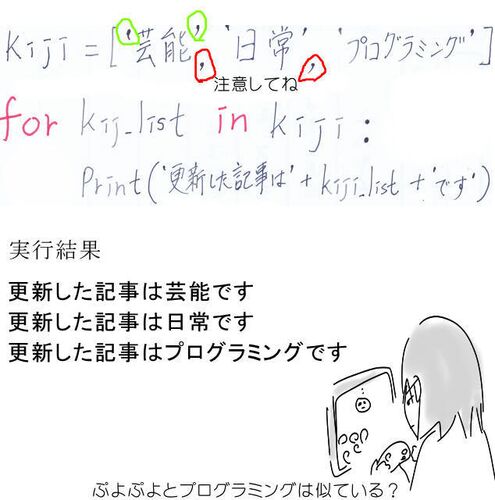 kiji = ['芸能', '日常', 'プログラミング']
注意してね
for kij_list in kiji:
Print('更新した記事は' + kiji_list + 'です')
実行結果
更新した記事は芸能です
更新した記事は日常です
更新した記事はプログラミングです
ぷよぷよとプログラミングは似ている?